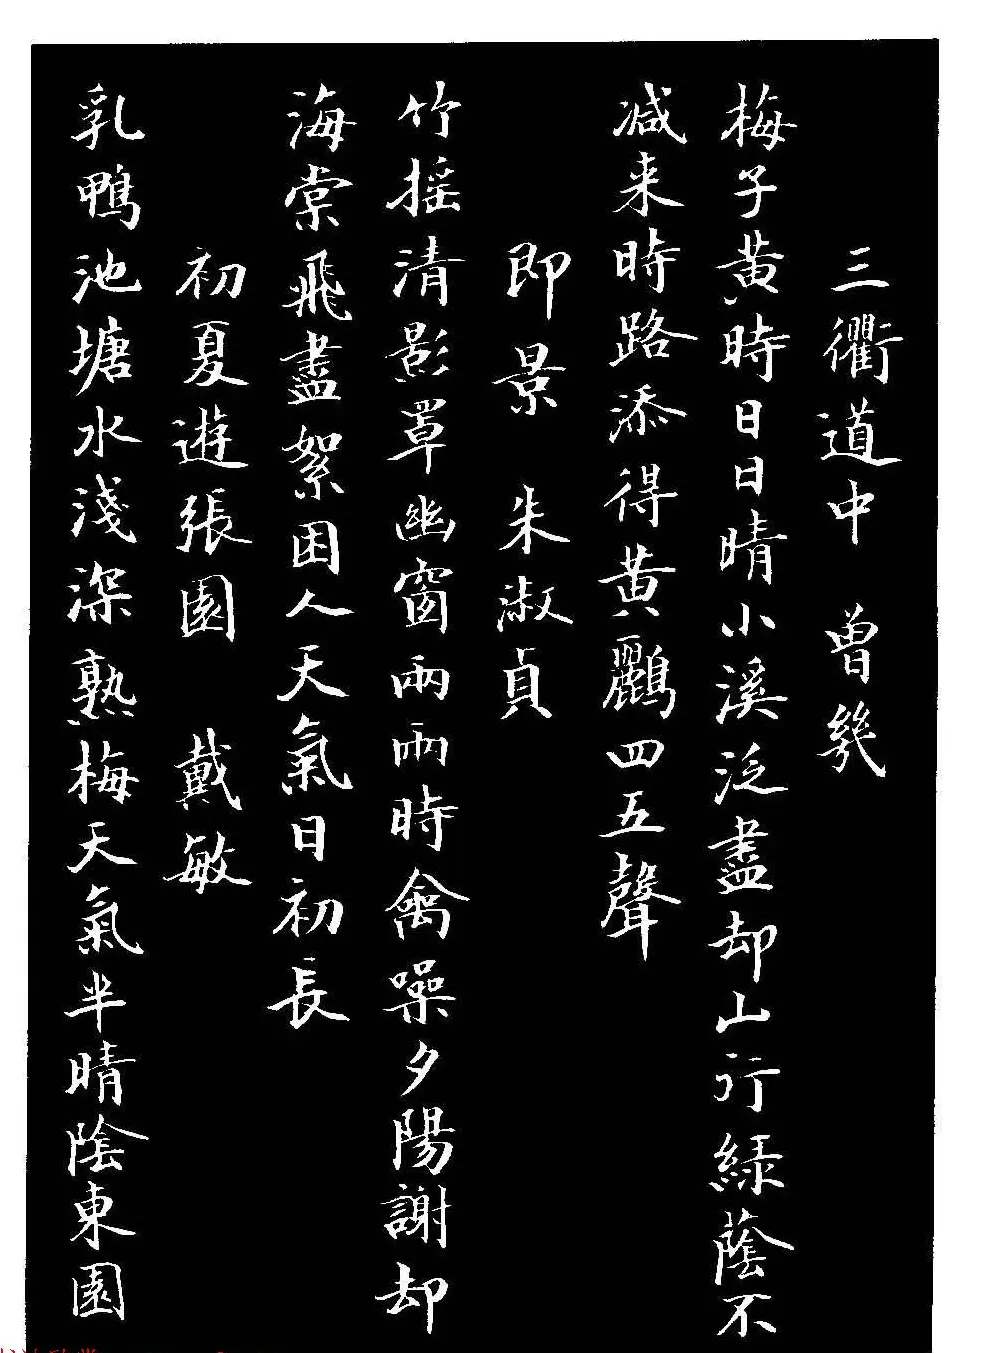 三衢道中 曾幾
梅子黃時日日晴小溪泛盡却山行綠蔭不
减来時路添得黃鸝四五聲
即景 朱淑貞
竹摇清影罩幽窗兩兩時禽噪夕陽謝却
海棠飛盡絮困人天氣日初長
初夏遊張園 戴敏
乳鴨池塘水淺深熟梅天氣半晴陰東園